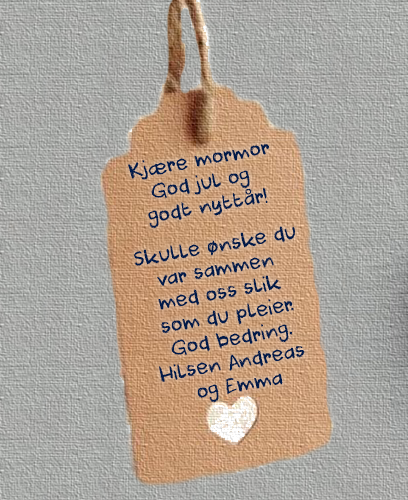 Kjære mormor
God jul og
godt nyttår!
Skulle ønske du
var sammen
med oss slik
som du pleier.
God bedring.
Hilsen Andreas
og Emma